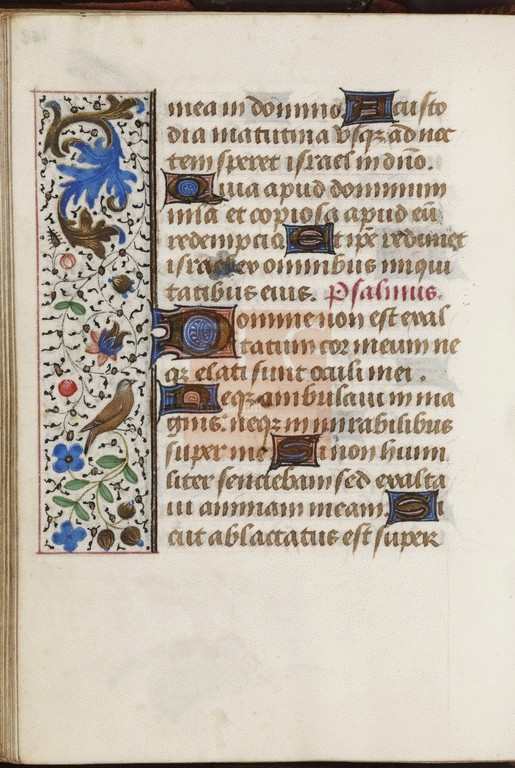 mea in domino A custo
dia matutina vsq; ad noc
tem speret israel in dn̄o.
Quia apud dominum
mia et copiosa apud eū
redempcio Et ip̄e redimet
israel ex omnibus iniqui
tatibus eius. Psalmus.
Domine non est exal
tatum cor meum ne
q; elati sunt oculi mei.
Neq; ambulaui in ma
gnis. neq; in mirabilibus
super me Si non humi
liter senciebam sed exalta
ui animam meam. Si
cut ablactatus est super